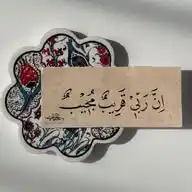 اِنَّ رَبِّيْ قَرِيْبٌ مُّجِيْبٌ